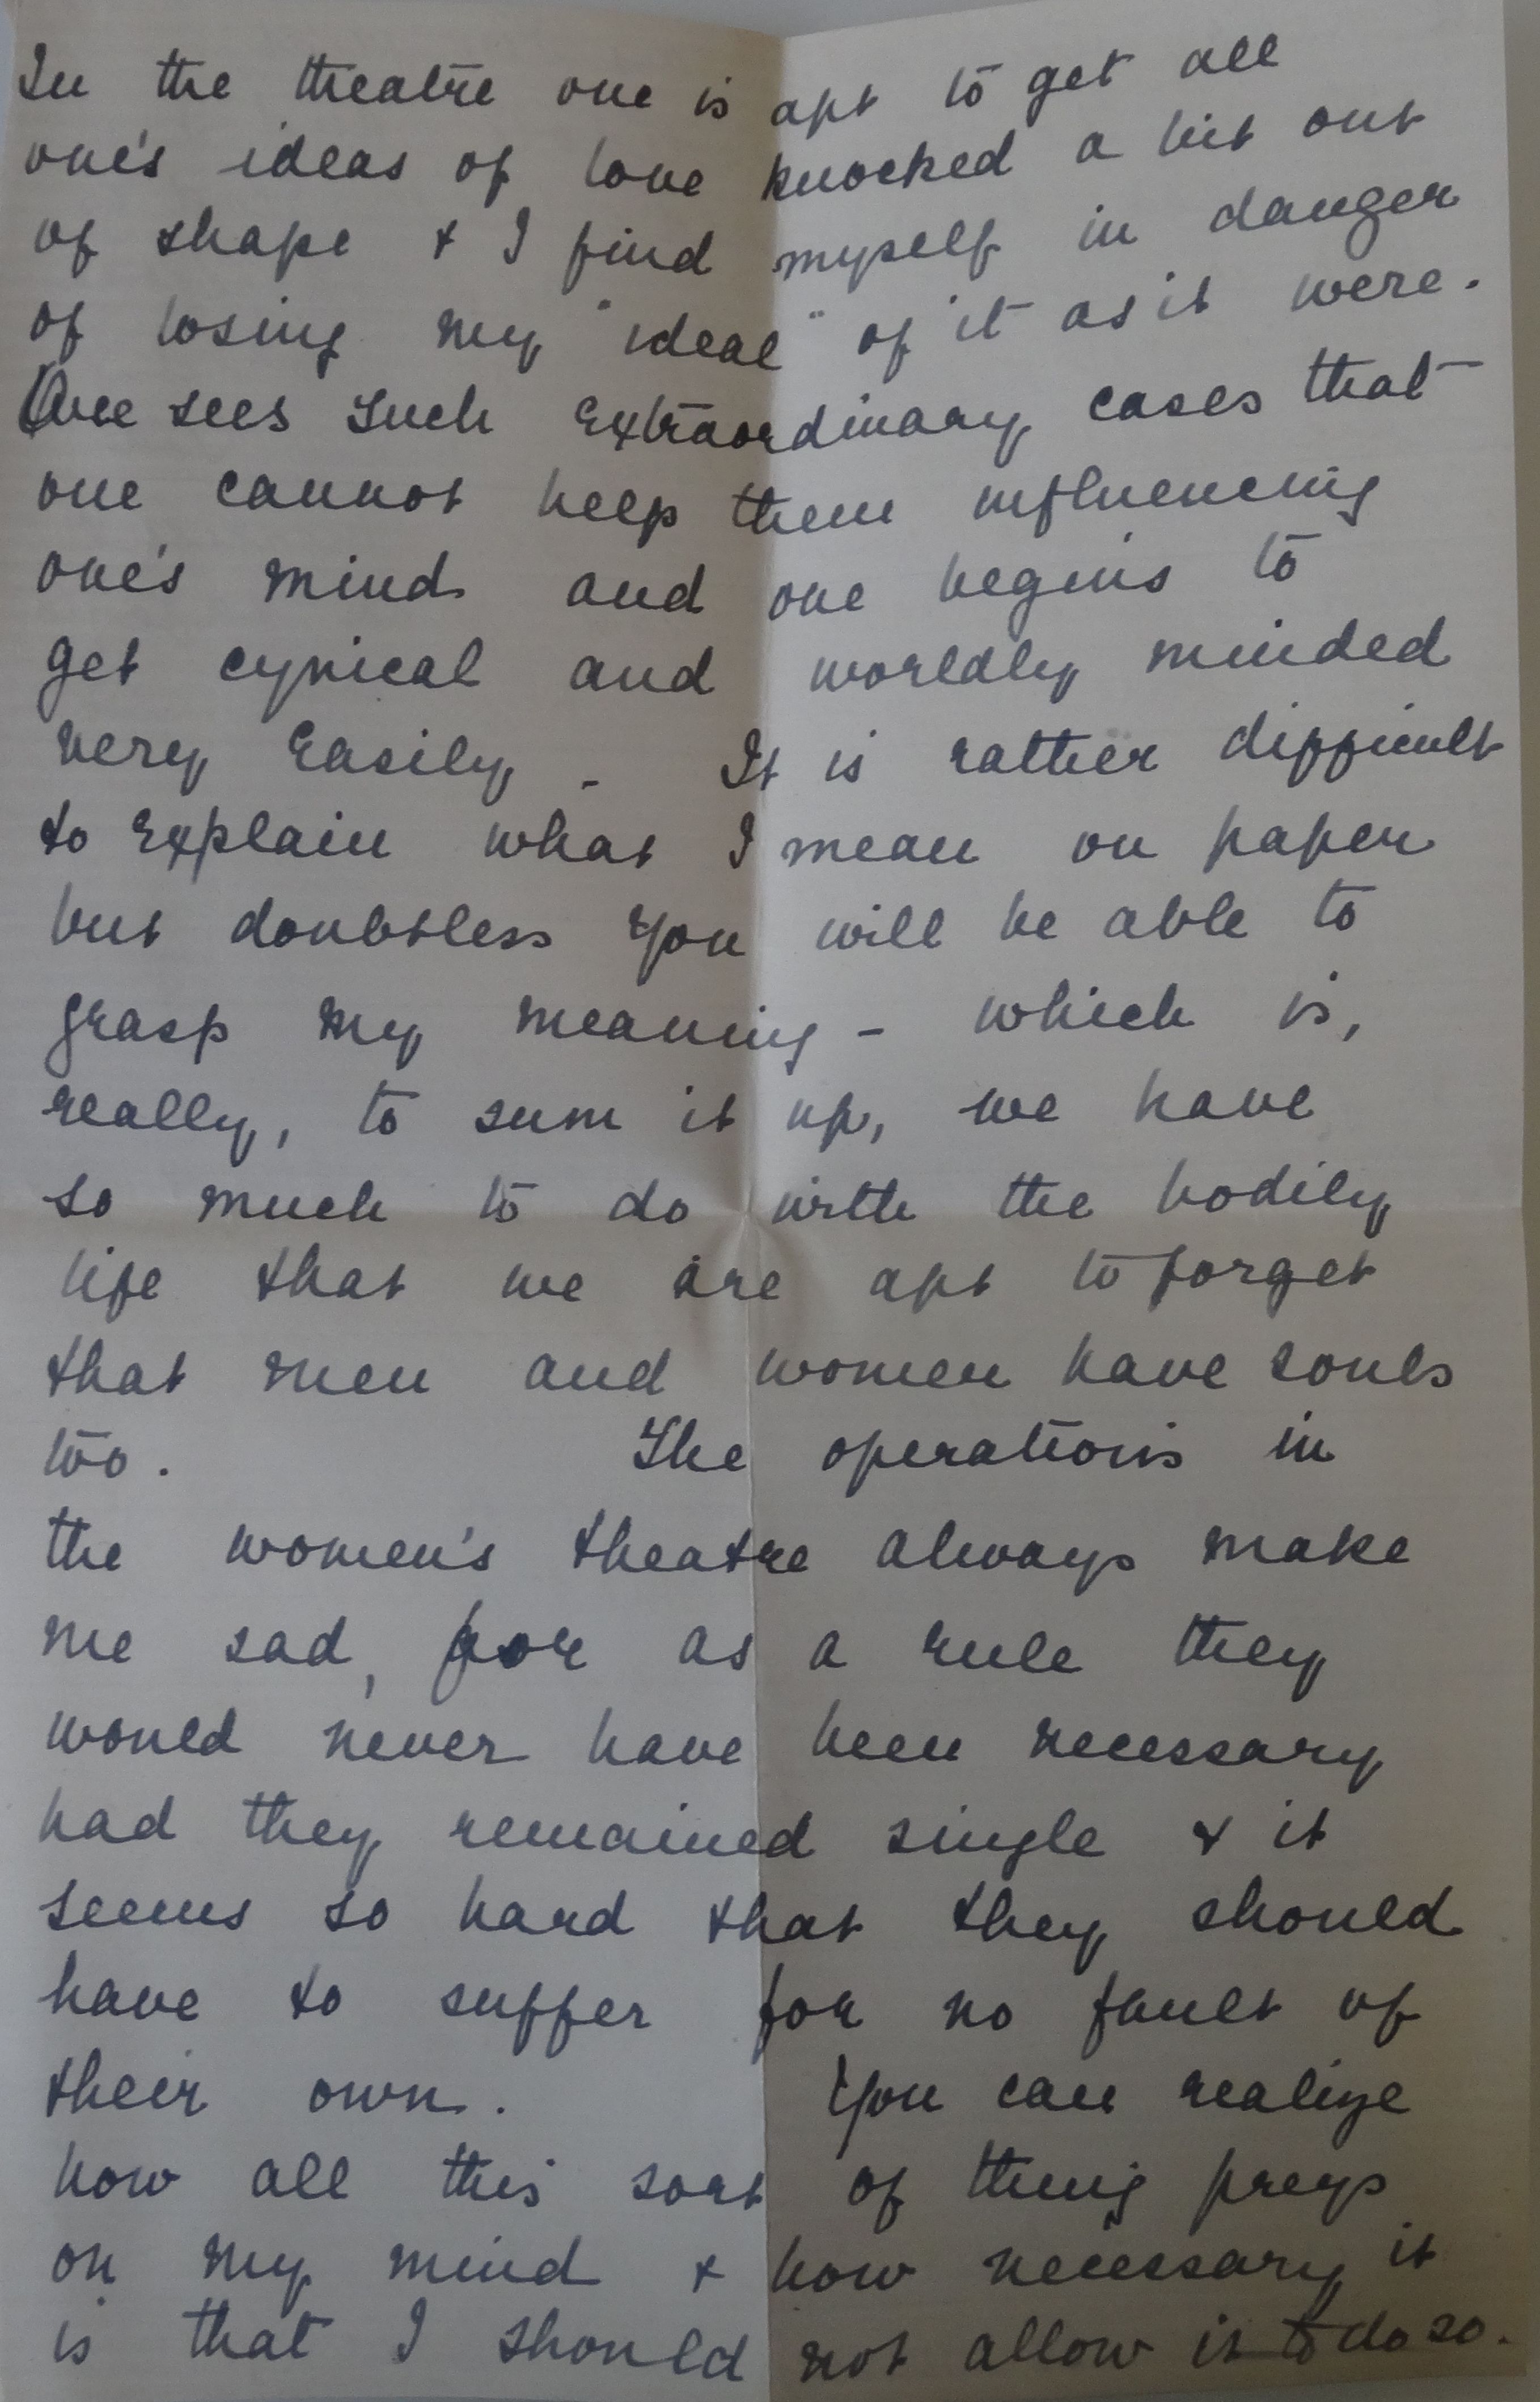 In the theatre one is apt to get all
one's ideas of love knocked a bit out
of shape & I find myself in danger
of losing my "ideal" of it as it were.
One sees such extraordinary cases that
one cannot help them influencing
one's mind and one begins to
get cynical and worldly minded
very easily - It is rather difficult
to explain what I mean on paper
but doubtless you will be able to
grasp my meaning - which is,
really, to sum it up, we have
so much to do with the bodily
life that we are apt to forget
that men and women have souls
too. The operations in
the women's theatre always make
me sad, for as a rule they
would never have been necessary
had they remained single & it
seems so hard that they should
have to suffer for no fault of
their own. You can realize
how all this sort of thing preys
on my mind & how necessary it
is that I should not allow it to do so.